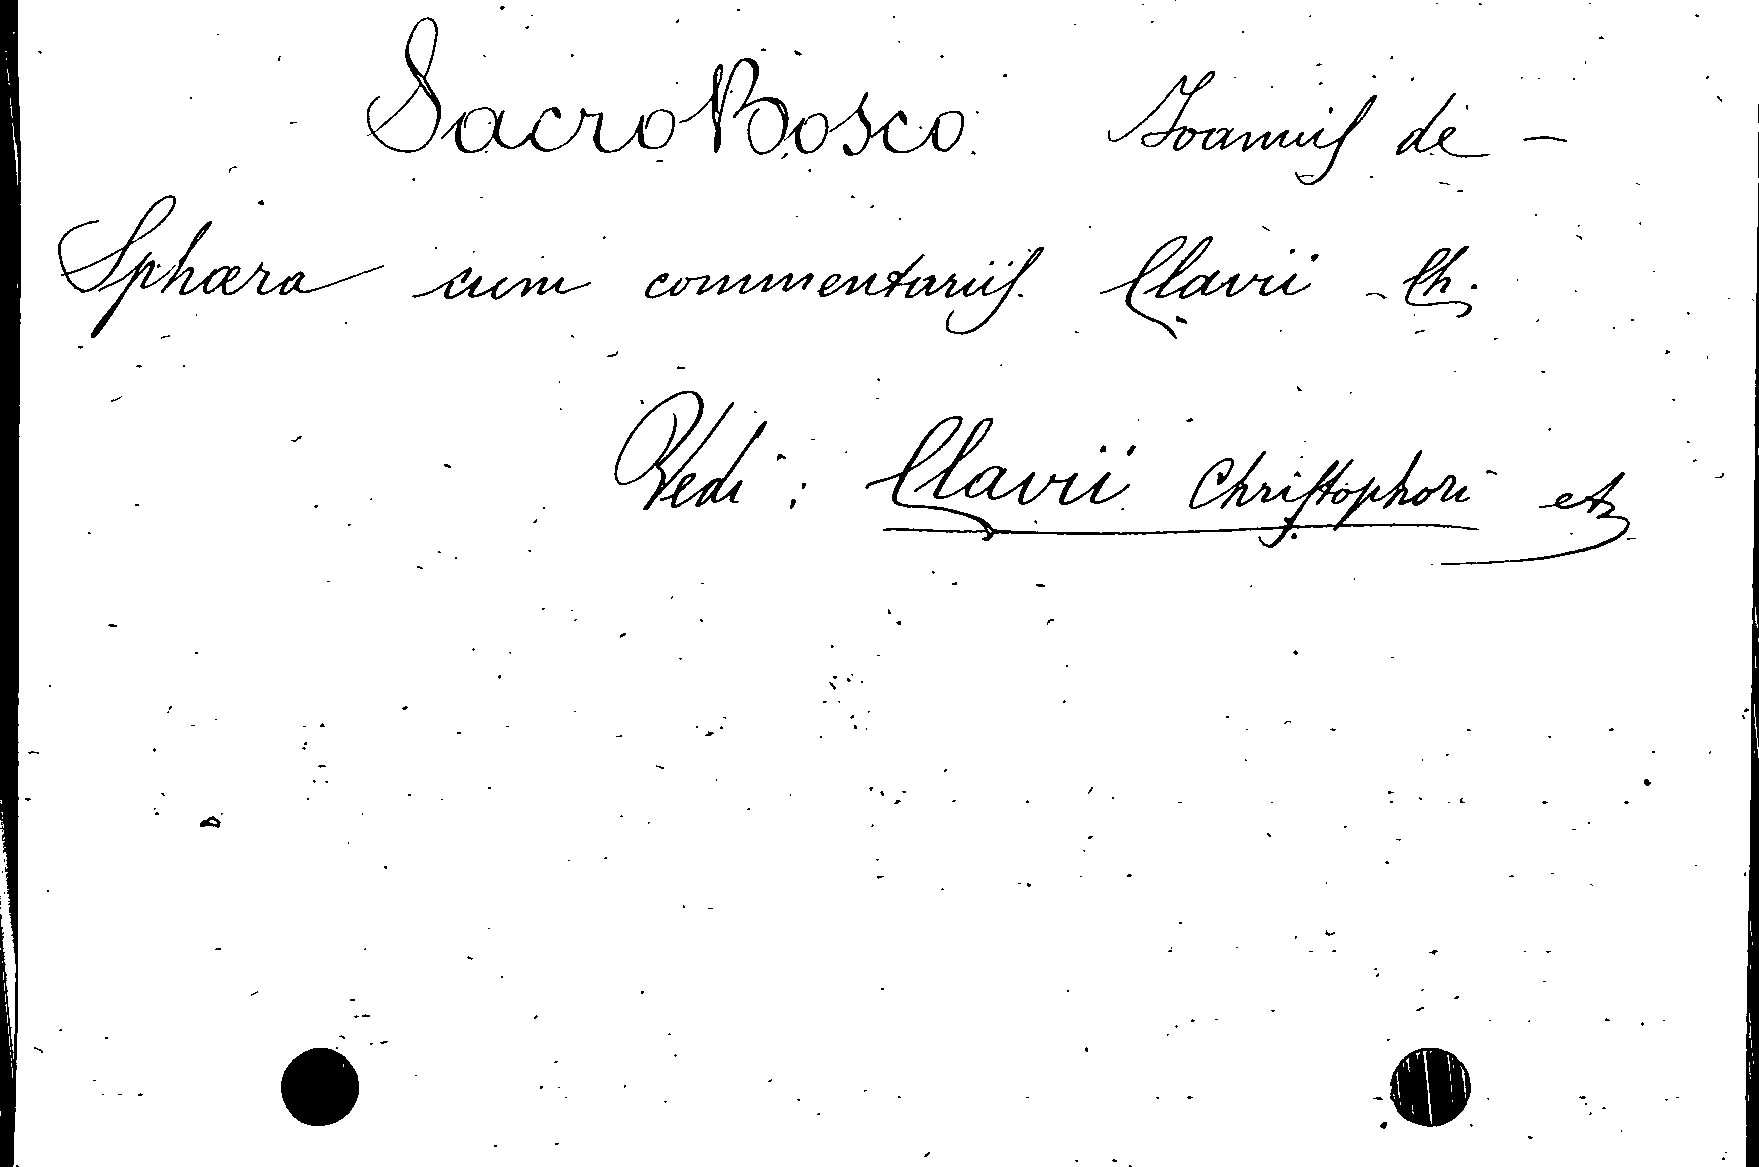 SacroBosco. Ioannis de -
Sphæra cum commentariis. Clavii - Ch.
Vedi: Clavii Christophori etz